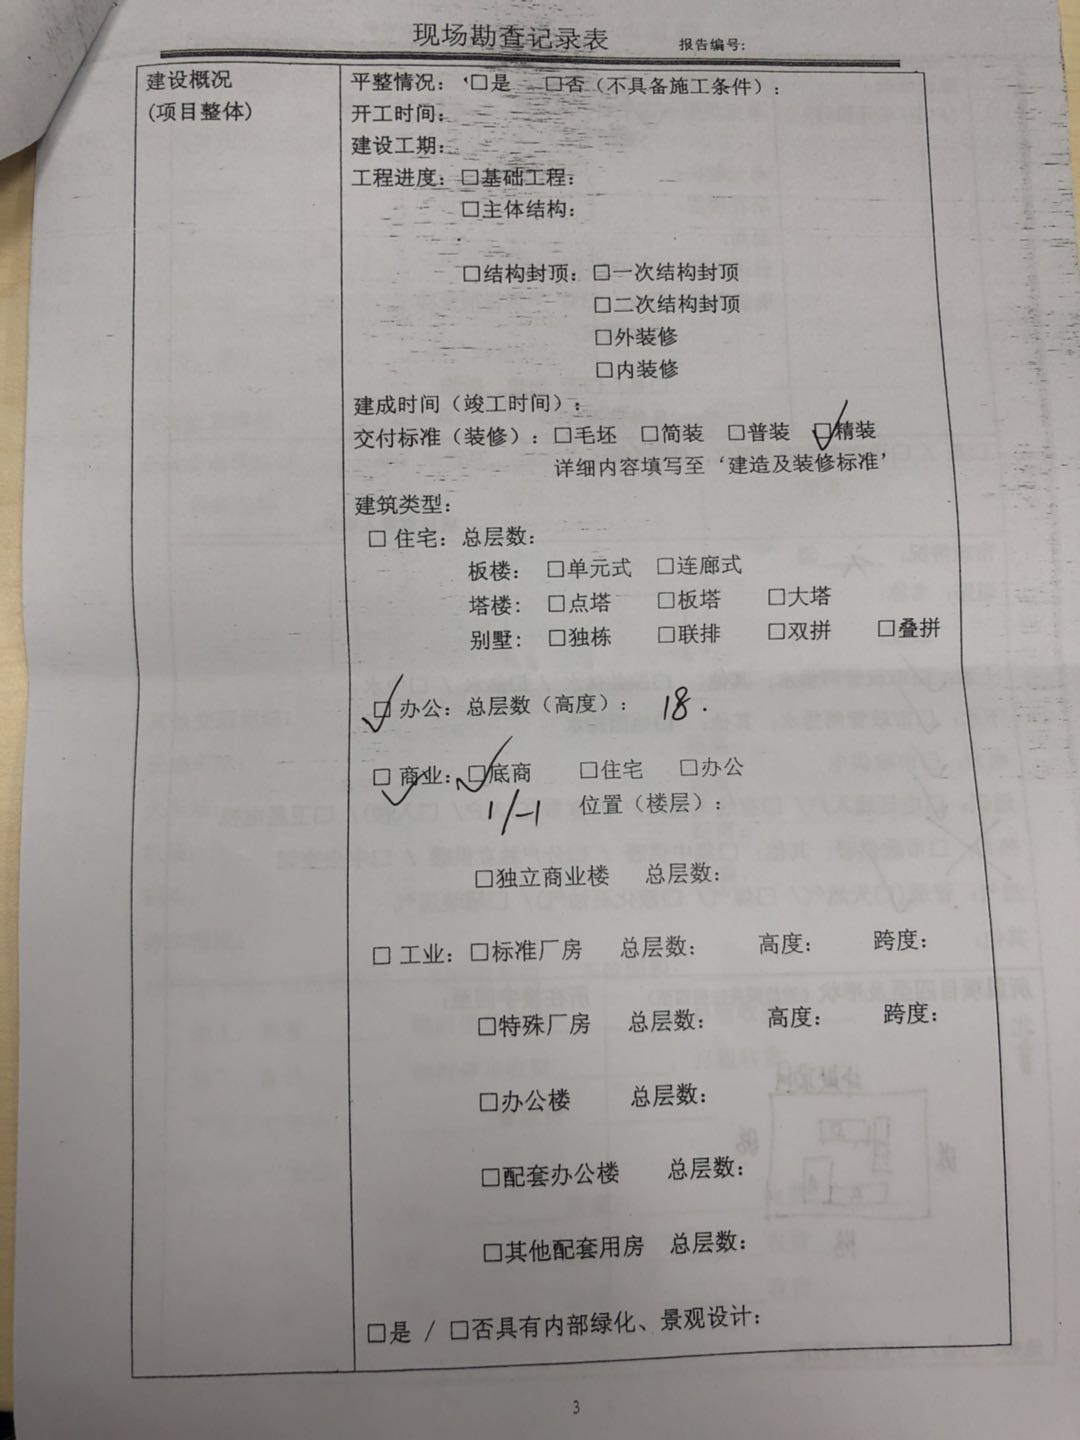 现场勘查记录表 报告编号：
建设概况
(项目整体)
平整情况： □是 □否（不具备施工条件）：
开工时间：
建设工期：
工程进度：□基础工程：
□主体结构：
□结构封顶：□一次结构封顶
□二次结构封顶
□外装修
□内装修
建成时间（竣工时间）：
交付标准（装修）：□毛坯 □简装 □普装 ☑精装
详细内容填写至‘建造及装修标准’
建筑类型：
□ 住宅：总层数：
板楼： □单元式 □连廊式
塔楼： □点塔 □板塔 □大塔
别墅： □独栋 □联排 □双拼 □叠拼
☑ 办公：总层数（高度）： 18.
☑ 商业：☑底商 □住宅 □办公
1/-1 位置（楼层）：
□独立商业楼 总层数：
□ 工业：□标准厂房 总层数： 高度： 跨度：
□特殊厂房 总层数： 高度： 跨度：
□办公楼 总层数：
□配套办公楼 总层数：
□其他配套用房 总层数：
□是 / □否具有内部绿化、景观设计：
3